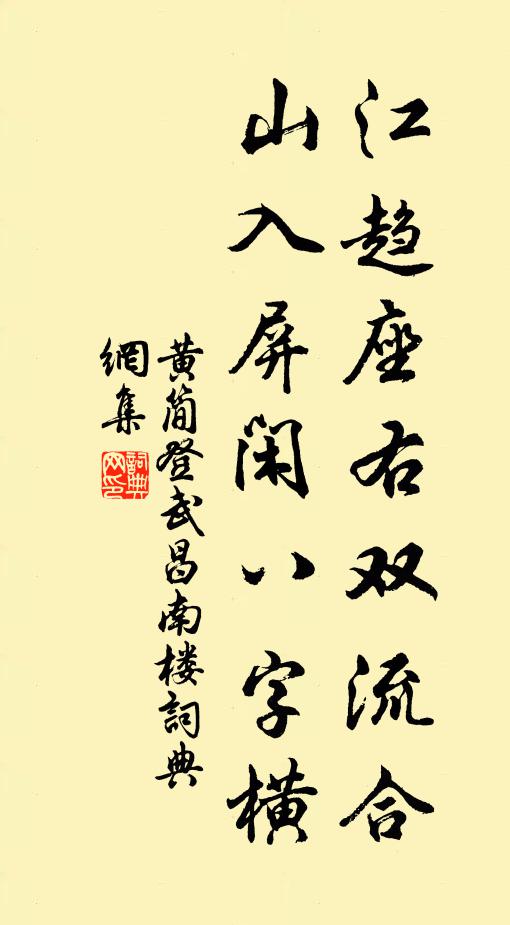 江趋座右双流合
山入屏闲八字横
黄简登武昌南楼詞典
網集
詞典网印